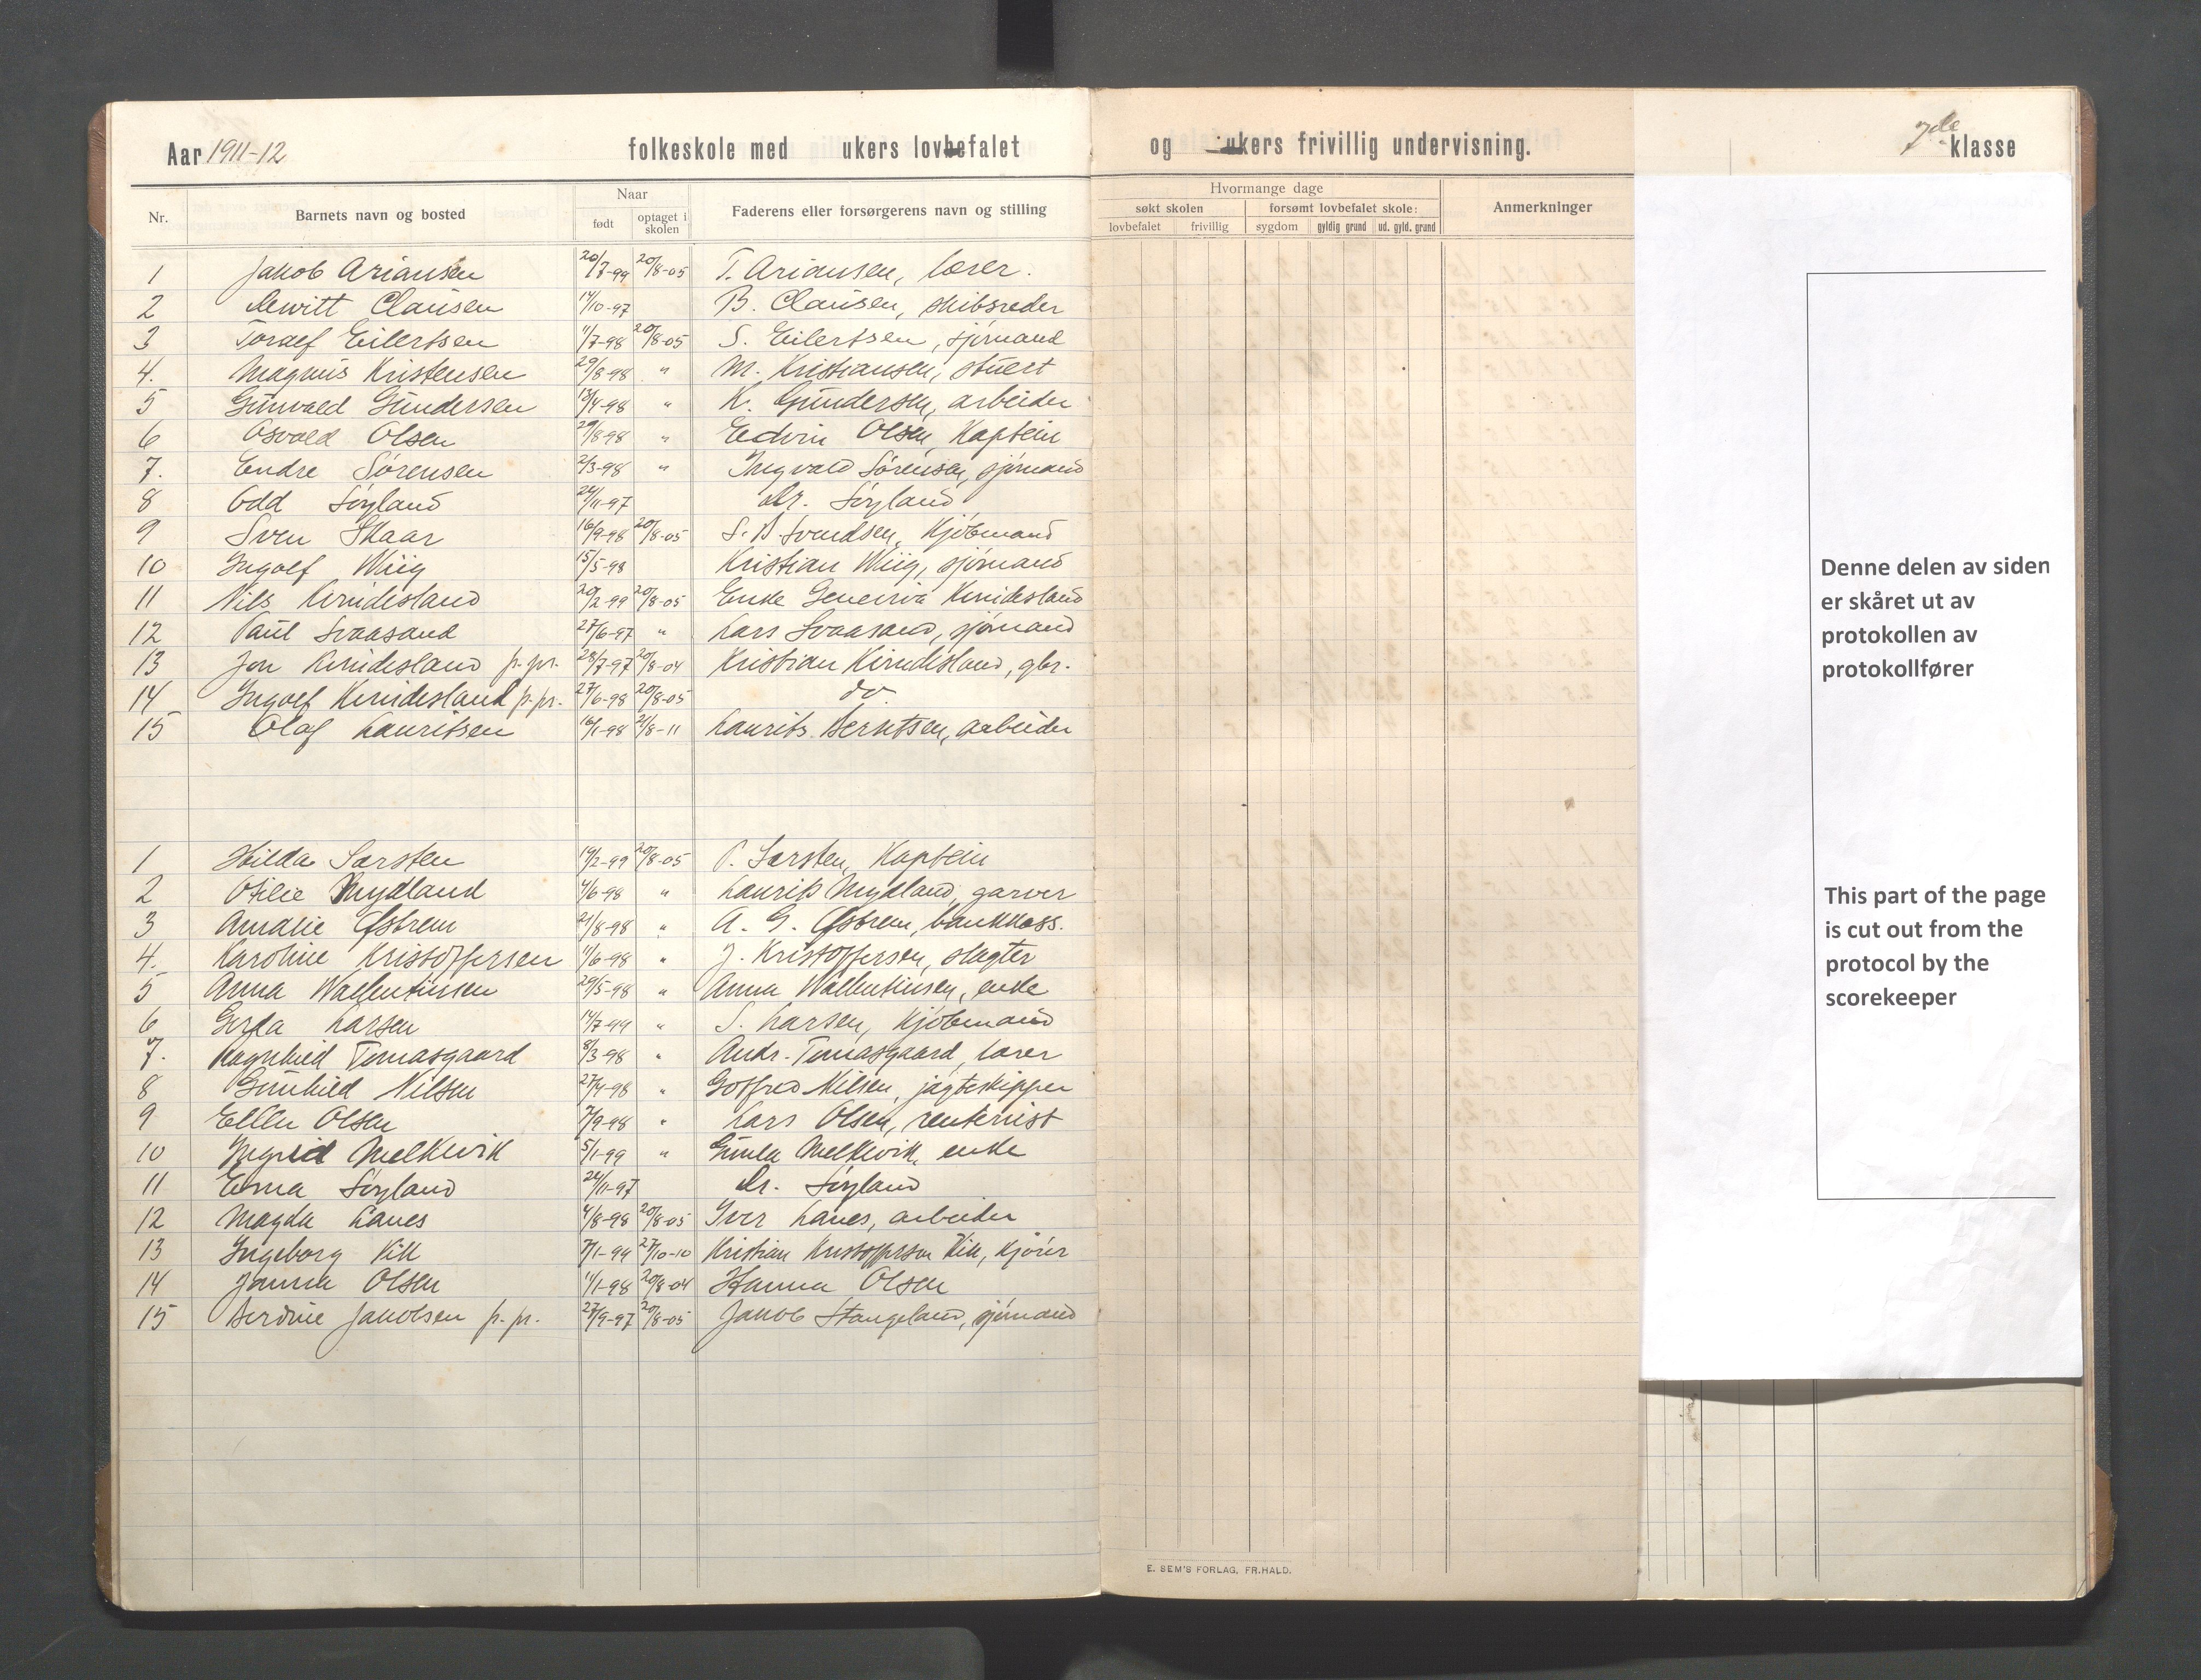 Aar 1911-12 folkeskole med ukers lovbefalet og ukers frivillig undervisning. 7de klasse
Nr. Barnets navn og bosted Naar født optaget i skolen Faderens eller forsørgerens navn og stilling Hvormange dage søkt skolen lovbefalet frivillig forsømt lovbefalet skole: sygdom gyldig grund ud. gyld. grund Anmerkninger
1 Jakob Ariansen 20/7-99 20/8-05 T. Ariansen, lærer.
2 Dewitt Clausen 14/10-97 B. Clausen, skibsreder
3 Toralf Eilertsen 11/7-98 20/8-05 S. Eilertsen, sjømand
4. Magnus Kristensen 29/8-98 " M. Kristiansen, stuert
5 Gunvald Gundersen 13/4-98 " K. Gundersen, arbeider
6 Osvald Olsen 29/8-98 " Edvin Olsen, Kaptein
7. Endre Sørensen 2/3-98 " Ingvald Sørensen, sjømand
8 Odd Søyland 24/11-97 Dr. Søyland
9 Sven Skaar 16/9-98 20/8-05 S. B. Svendsen, Kjøbmand
10 Ingolf Wiig 15/5-98 Kristian Wiig, sjømand
11 Nils Kvindesland 20/2-99 20/8-05 Enke Kvindesland
12 Paul Svaasand 27/6-97 " Lars Svaasand, sjømand
13 Jon Kvindesland p.pr. 28/7-97 20/8-04 Kristian Kvindesland, gbr.
14 Ingolf Kvindesland p.pr. 27/6-98 20/8-05 do.
15 Olaf Lauritsen 16/1-98 21/8-11 Laurits Berntsen, arbeider
1 Hilda Sørsten 19/2-99 20/8-05 P. Sørsten, Kaptein
2 Otilie Mydland 4/6-98 " Laurits Mydland, garver
3 Amalie Østrem 21/8-98 " A. G. Østrem, bankkass.
4. Karoline Kristoffersen 11/6-98 " J. Kristoffersen, slagter
5 Anna Wallentinsen 29/5-98 " Anna Wallentinsen, enke
6 Gerda Larsen 14/7-99 " S. Larsen, Kjøbmand
7. Ragnhild Tomasgaard 8/3-98 " Andr. Tomasgaard, lærer
8 Gunhild Nilsen 27/4-98 " Gotfred Nilsen, jagteskipper
9 Ellen Olsen 7/9-98 " Lars Olsen, rentenist
10 Ingrid Melkevik 5/1-99 " Gunla Melkevik, enke
11 Erna Søyland 24/11-97 Dr. Søyland
12 Magda Lanes 4/8-98 20/8-05 Iver Lanes, arbeider
13 Ingeborg Vik 7/1-99 27/10-10 Kristian Kristoffersen Vik, kjører
14 Janna Olsen 11/1-98 20/8-04 Hanna Olsen
15 Berdine Jakobsen p.pr. 27/9-97 20/8-05 Jakob Stangeland, sjømand
E. SEM'S FORLAG, FR.HALD.
Denne delen av siden
er skåret ut av
protokollen av
protokollfører
This part of the page
is cut out from the
protocol by the
scorekeeper